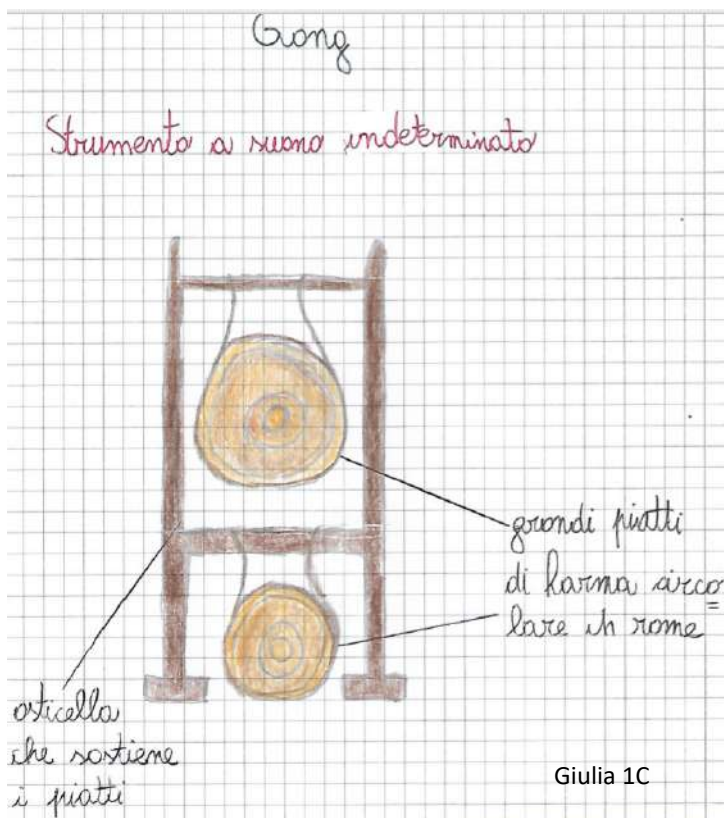 Gong
Strumento a suono indeterminato
grandi piatti
di forma circo=
lare in rame
asticella
che sostiene
i piatti
Giulia 1C